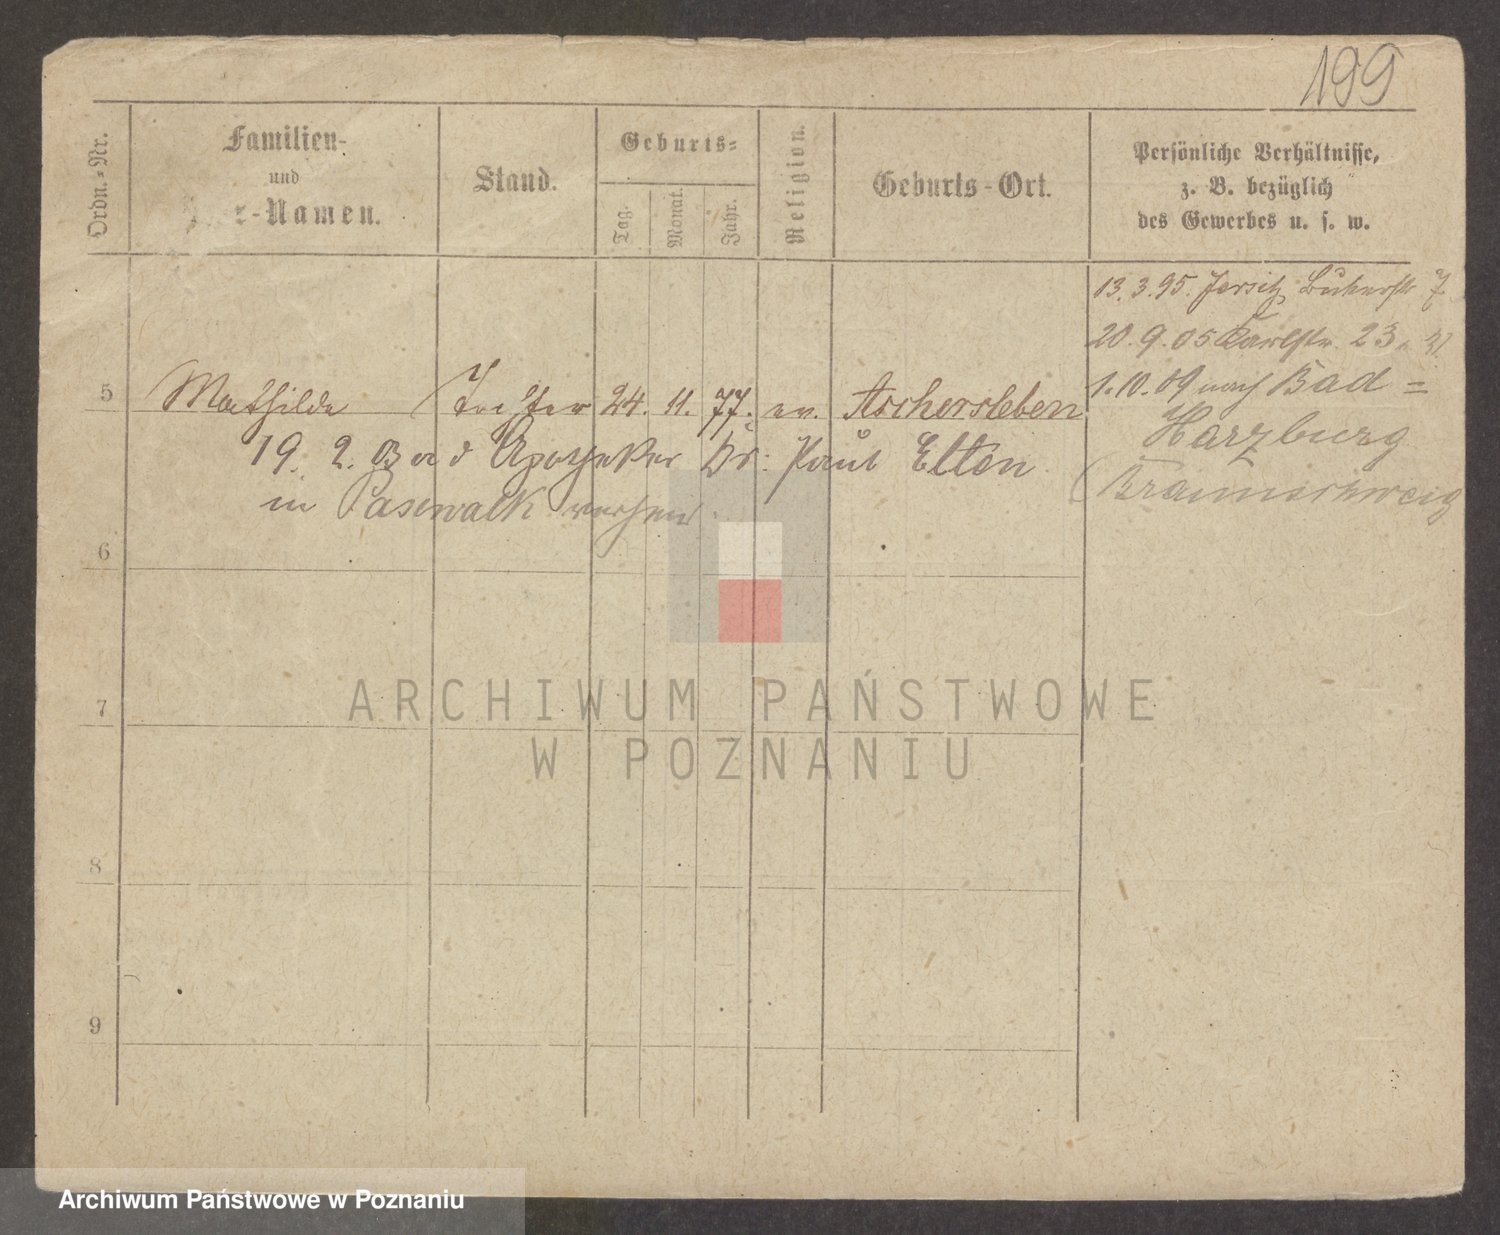 199
Ordn.-Nr.
Familien-
und
r-Namen.
Stand.
Geburts-
Tag.
Monat.
Jahr.
Religion.
Geburts-Ort.
Persönliche Verhältnisse,
z. B. bezüglich
des Gewerbes u. s. w.
13. 3. 95. Jersitz 7
20. 9. 05 Karlstr. 23
5 Mathilde Tochter 24. 11. 77. ev. Aschersleben
1. 10. 09 nach Bad =
Harzburg
(Braunschweig
19. 2. Apotheker Dr. Paul Elten
in Pasewalk verheir.
6
7
8
9
ARCHIWUM PAŃSTWOWE
W POZNANIU
Archiwum Państwowe w Poznaniu